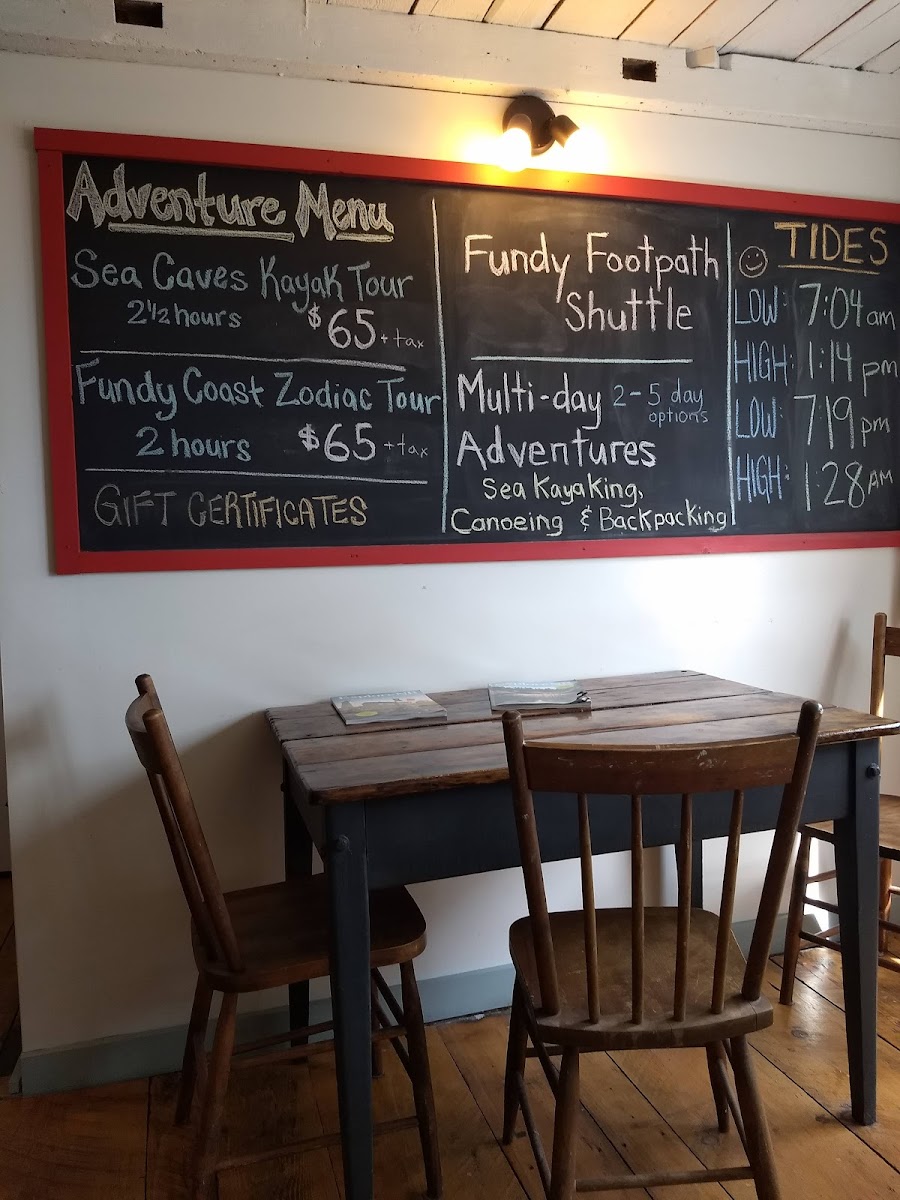 Adventure Menu
Sea Caves Kayak Tour
2 1/2 hours $65 + tax
Fundy Coast Zodiac Tour
2 hours $65 + tax
GIFT CERTIFICATES
Fundy Footpath
Shuttle
Multi-day 2-5 day
options
Adventures
Sea Kayaking,
Canoeing & Backpacking
TIDES
LOW: 7:04 am
HIGH: 1:14 pm
LOW: 7:19 pm
HIGH: 1:28 AM